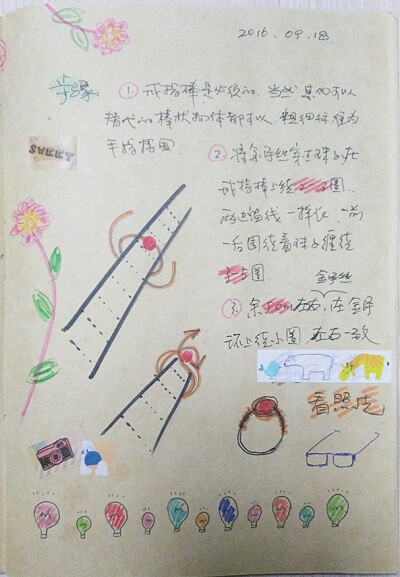 2016.09.18.
步骤
① 戒指棒是必须的,当然其他可以
替代的棒状物体都可以,粗细标准为
手指指围
SWEET
② 将金字丝穿过珠子在
戒指棒上绕
圈,
两边留线一样长,一前
一后围绕着珠子缠绕
圈
金字丝
③ 余
左右,在金字
环上绕小圈 左右一致
看照片